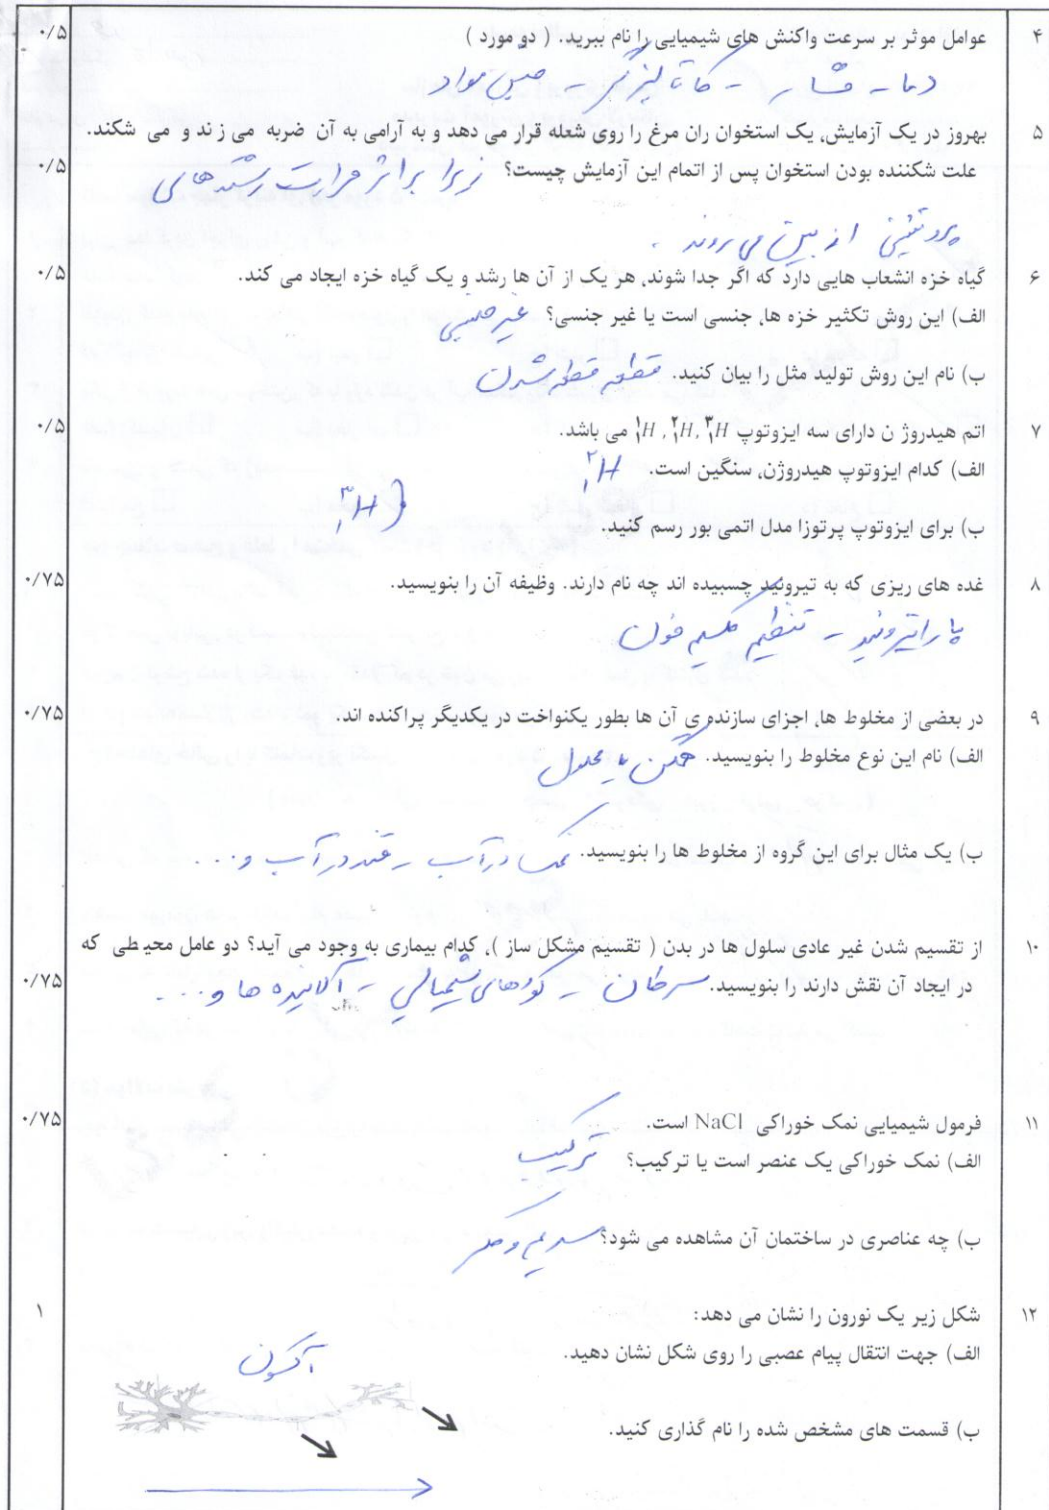 ۴ عوامل موثر بر سرعت واکنش های شیمیایی را نام ببرید. ( دو مورد ) ۰/۵
دما - فشار - کاتالیزگر - جنس مواد
۵ بهروز در یک آزمایش، یک استخوان ران مرغ را روی شعله قرار می دهد و به آرامی به آن ضربه می زند و می شکند.
علت شکننده بودن استخوان پس از اتمام این آزمایش چیست؟ زیرا بر اثر حرارت رشته های ۰/۵
پروتئینی از بین می روند .
۶ گیاه خزه انشعاب هایی دارد که اگر جدا شوند، هر یک از آن ها رشد و یک گیاه خزه ایجاد می کند. ۰/۵
الف) این روش تکثیر خزه ها، جنسی است یا غیر جنسی؟ غیر جنسی
ب) نام این روش تولید مثل را بیان کنید. قطعه قطعه شدن
۷ اتم هیدروژ ن دارای سه ایزوتوپ ³₁H , ²₁H , ¹₁H می باشد. ۰/۵
الف) کدام ایزوتوپ هیدروژن، سنگین است. ²₁H
ب) برای ایزوتوپ پرتوزا مدل اتمی بور رسم کنید. ³₁H
۸ غده های ریزی که به تیروئید چسبیده اند چه نام دارند. وظیفه آن را بنویسید. ۰/۷۵
پاراتیروئید - تنظیم کلسیم خون
۹ در بعضی از مخلوط ها، اجزای سازنده ی آن ها بطور یکنواخت در یکدیگر پراکنده اند. ۰/۷۵
الف) نام این نوع مخلوط را بنویسید. همگن یا محلول
ب) یک مثال برای این گروه از مخلوط ها را بنویسید. نمک در آب - قند در آب و ...
۱۰ از تقسیم شدن غیر عادی سلول ها در بدن ( تقسیم مشکل ساز )، کدام بیماری به وجود می آید؟ دو عامل محیطی که
در ایجاد آن نقش دارند را بنویسید. سرطان - کودهای شیمیایی - آلاینده ها و ... ۰/۷۵
۱۱ فرمول شیمیایی نمک خوراکی NaCl است. ۰/۷۵
الف) نمک خوراکی یک عنصر است یا ترکیب؟ ترکیب
ب) چه عناصری در ساختمان آن مشاهده می شود؟ سدیم و کلر
۱۲ شکل زیر یک نورون را نشان می دهد: ۱
الف) جهت انتقال پیام عصبی را روی شکل نشان دهید.
آکسون
ب) قسمت های مشخص شده را نام گذاری کنید.